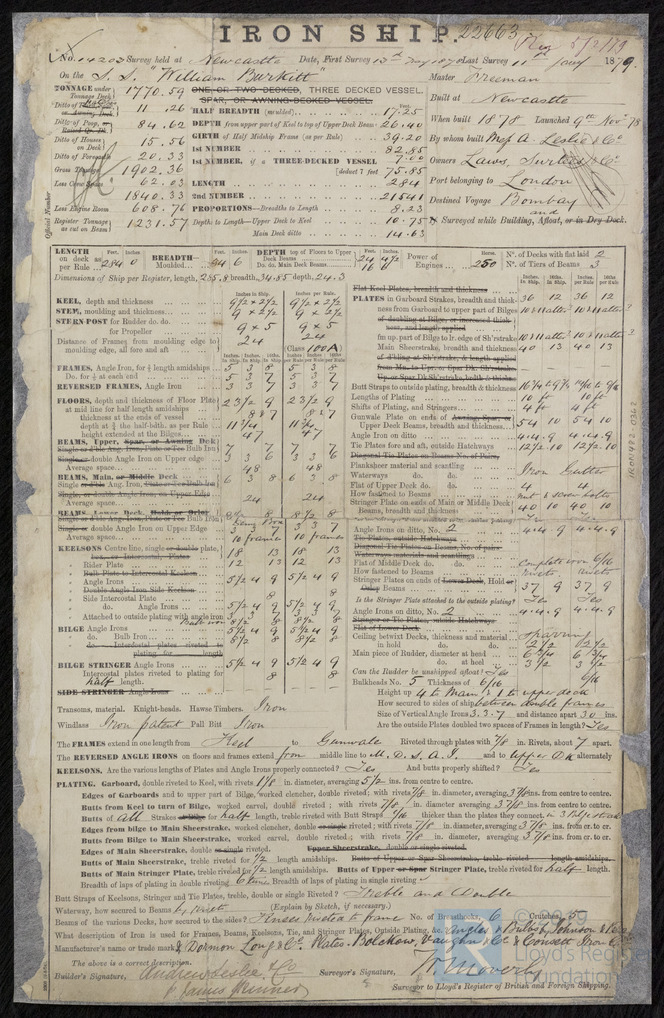 IRON SHIP. 22663
No. 14203 Survey held at Newcastle Date, First Survey Last Survey 11th Jany 1879
On the S.S. "William Burkitt" Master Freeman
TONNAGE under Tonnage Deck 1770.59
ONE, OR TWO DECKED, THREE DECKED VESSEL.
SPAR, OR AWNING-DECKED VESSEL.
or Awning Dk. 11.26
Ditto of Poop, 84.62
Ditto of Houses on Deck 15.56
Ditto of Forecastle 20.33
Gross Tonnage 1902.36
Less Crew Space 62.03
1840.33
Less Engine Room 608.76
Register Tonnage as cut on Beam 1231.57
Official Number
HALF BREADTH (moulded) 17.25
DEPTH from upper part of Keel to top of Upper Deck Beams 26.40
GIRTH of Half Midship Frame (as per Rule) 39.20
1st NUMBER 82.85
1st NUMBER, if a THREE-DECKED VESSEL deduct 7 feet 7.00
75.85
LENGTH 284
2nd NUMBER 21541
PROPORTIONS—Breadths to Length 8.23
Depths to Length—Upper Deck to Keel 10.75
Main Deck ditto 14.63
Built at Newcastle
When built 1878 Launched 9th Nov. 78
By whom built Messrs A. Leslie & Co
Owners Laws, Surtees & Co.
Port belonging to London
Destined Voyage Bombay
Surveyed while Building, Afloat, or in Dry Dock.
LENGTH on deck as per Rule 284 0
BREADTH—Moulded 34 6
DEPTH top of Floors to Upper Deck Beams 24 4½
Do. do. Main Deck Beams 16 11
Power of Engines 250 Horse.
No. of Decks with flat laid 2
No. of Tiers of Beams 3
Dimensions of Ship per Register, length, 285.8 breadth, 34.85 depth, 24.3
KEEL, depth and thickness 9½ × 2½ 9½ × 2½
STEM, moulding and thickness 9 × 2½ 9 × 2½
STERN-POST for Rudder do. do. 9 × 5 9 × 5
for Propeller
Distance of Frames from moulding edge to moulding edge, all fore and aft 24 24
(Class 100A)
FRAMES, Angle Iron, for ¾ length amidships 5 3 8 5 3 8
Do. for ¼ at each end 5 3 7 5 3 7
REVERSED FRAMES, Angle Iron 3 3 7 3 3 7
FLOORS, depth and thickness of Floor Plate at mid line for half length amidships 23½ 9 23½ 9
thickness at the ends of vessel
depth at ¾ the half-bdth. as per Rule 11¾ 11¾
height extended at the Bilges 47 47
BEAMS, Upper, Spar, or Awning Deck
Single or d'ble Ang. Iron, Plate or Tee Bulb Iron 7 7 7 7
Single or double Angle Iron on Upper edge 3 3 6 3 3 6
Average space 48 48
BEAMS, Main, or Middle Deck
Single or d'ble Ang. Iron, Plate or Tee Bulb Iron 6 8 6 8
Single, or double Angle Iron, on Upper Edge 3 3
Average space 24 24
BEAMS, Lower Deck, Hold or Orlop
Single or double Angle Iron on Upper Edge 3 3 7 3 3 7
Average space 10 frames 10 frames
KEELSONS Centre line, single or double plate, box, or Intercostal, Plates 18 13 18 13
Rider Plate 12 13 12 13
Bulb Plate to Intercostal Keelson
Angle Irons 5½ 4 9 5½ 4 9
Double Angle Iron Side Keelson
Side Intercostal Plate 8 8
do. Angle Irons 5½ 4 9 5½ 4 9
Attached to outside plating with angle iron 3 3 7 3 3 7
BILGE Angle Irons 5½ 4 9 5½ 4 9
do. Bulb Iron 8½ 8 8½ 8
do. Intercostal plates riveted to plating for length
BILGE STRINGER Angle Irons 5½ 4 9 5½ 4 9
Intercostal plates riveted to plating for half length. 8 8
SIDE STRINGER Angle Irons
Transoms, material. Knight-heads. Hawse Timbers. Iron
Windlass Iron patent Pall Bitt Iron
Flat Keel Plates, breadth and thickness
PLATES in Garboard Strakes, breadth and thickness 36 12 36 12
from Garboard to upper part of Bilges
of doubling at Bilge, or increased thickness, and length applied
fm up. part of Bilge to lr. edge of Sh'rstrake
Main Sheerstrake, breadth and thickness 40 13 40 13
of d'bling at Sh'rstrake, & length applied
from Ma. to Up. or Spar Dk. Sh'rstrake.
Up. or Spar Dk Sh'rstrake, bdth & thickns
Butt Straps to outside plating, breadth & thickness
Lengths of Plating 10 ft 10 ft
Shifts of Plating, and Stringers 4 ft 4 ft
Gunwale Plate on ends of Awning, Spar, or Upper Deck Beams, breadth and thickness 54 10 54 10
Angle Iron on ditto 4.4.9 4.4.9
Tie Plates fore and aft, outside Hatchways 12½ 10 12½ 10
Diagonal Tie Plates on Beams No. of Pairs,
Planksheer material and scantling Iron Gutter
Waterways do. do.
Flat of Upper Deck do. do. 4 4
How fastened to Beams Nut & screw bolts
Stringer Plate on ends of Main or Middle Deck Beams, breadth and thickness 40 10 40 10
Angle Irons on ditto, No. 2 4.4.9 4.4.9
Tie Plates, outside Hatchways
Diagonal Tie Plates on Beams, No. of pairs
Waterways materials and scantlings
Flat of Middle Deck do. do. Complete iron 6/16
How fastened to Beams Rivets
Stringer Plates on ends of Lower Deck, Hold or Orlop Beams 37 9 37 9
Is the Stringer Plate attached to the outside plating? Yes Yes
Angle Irons on ditto, No. 2 4.4.9 4.4.9
Stringer or Tie Plates, outside Hatchways
Flat of Lower Deck
Ceiling betwixt Decks, thickness and material Sparring
in hold do. do. 2½ 2½
Main piece of Rudder, diameter at head 6¾ 6¾
do. at heel 3½ 3½
Can the Rudder be unshipped afloat? Yes
Bulkheads No. 5 Thickness of 6/16 6/16
Height up 4 to Main & 1 to upper deck
How secured to sides of ship between double frames
Size of Vertical Angle Irons 3.3.7 and distance apart 30 ins.
Are the outside Plates doubled two spaces of Frames in length? Yes
IRON492-0367
The FRAMES extend in one length from Keel to Gunwale Riveted through plates with 7/8 in. Rivets, about 7 apart.
The REVERSED ANGLE IRONS on floors and frames extend from middle line to M. D. S. A. I. and to Upper Dk alternately
KEELSONS. Are the various lengths of Plates and Angle Irons properly connected? Yes And butts properly shifted? Yes
PLATING. Garboard, double riveted to Keel, with rivets 1 1/8 in. diameter, averaging 5½ ins. from centre to centre.
Edges of Garboards and to upper part of Bilge, worked clencher, double riveted; with rivets 7/8 in. diameter, averaging 3 7/8 ins. from centre to centre.
Butts from Keel to turn of Bilge, worked carvel, double riveted; with rivets 7/8 in. diameter, averaging 3 7/8 ins. from centre to centre.
Butts of all Strakes at Bilge for half length, treble riveted with Butt Straps 1/16 thicker than the plates they connect.
Edges from bilge to Main Sheerstrake, worked clencher, double or single riveted; with rivets 7/8 in. diameter, averaging 3 7/8 ins. from cr. to cr.
Butts from bilge to Main Sheerstrake, worked carvel, double riveted; with rivets 7/8 in. diameter, averaging 3 7/8 ins. from cr. to cr.
Edges of Main Sheerstrake, double or single riveted. Upper Sheerstrake, double or single riveted.
Butts of Main Sheerstrake, treble riveted for ½ length amidships. Butts of Upper or Spar Sheerstrake, treble riveted length amidships.
Butts of Main Stringer Plate, treble riveted for ½ length amidships. Butts of Upper or Spar Stringer Plate, treble riveted for half length.
Breadth of laps of plating in double riveting 6 times Breadth of laps of plating in single riveting
Butt Straps of Keelsons, Stringer and Tie Plates, treble, double or single Riveted? Treble and Double
Waterway, how secured to Beams by rivets (Explain by Sketch, if necessary.)
Beams of the various Decks, how secured to the sides? Knees riveted to frame No. of Breasthooks, 6 Crutches,
What description of Iron is used for Frames, Beams, Keelsons, Tie, and Stringer Plates, Outside Plating, &c. Angles & Bulbs, Johnson & Reay
Manufacturer's name or trade mark, & Dorman Long & Co. Plates - Bolckow, Vaughn & Co & Consett Iron Co
The above is a correct description.
Builder's Signature, Andrew Leslie & Co Surveyor's Signature,
p James Skinner
Surveyor to Lloyd's Register of British and Foreign Shipping.
Lloyd's Register Foundation